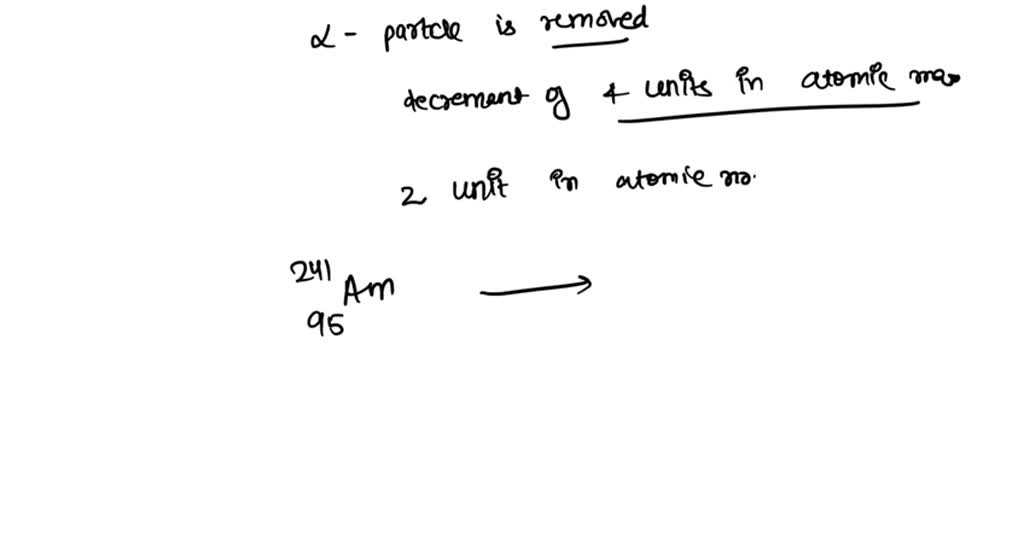 α - partcle is removed
decrement of 4 units in atomic mas
2 unit in atomic no.
241
Am ⟶
95